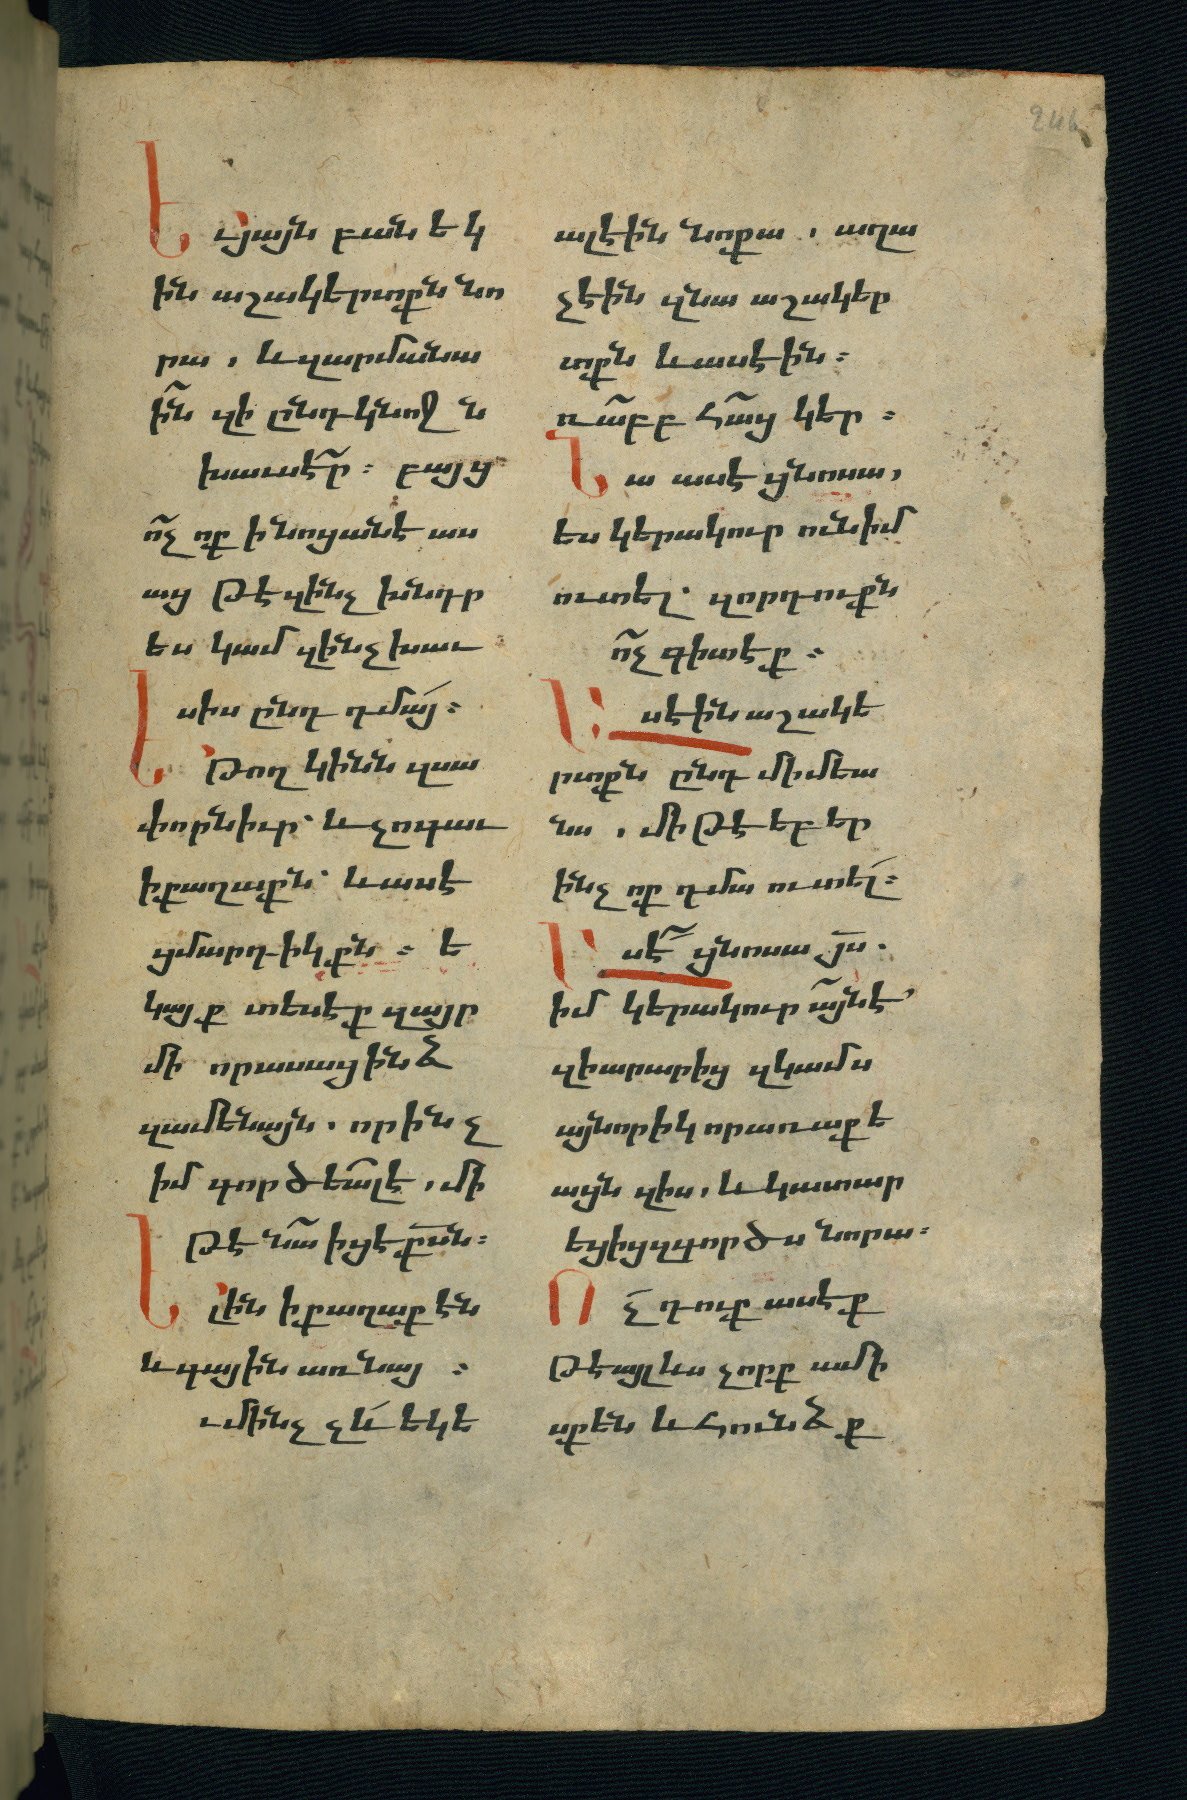 Եւ յայն բան եկ
ին աշակերտքն նո
րա, և զարմանա
ին̃ զի ընդ կնոջ ն
խաւսէր̃։ բայց
ո̃չ ոք ի նոցանէ աս
աց թէ զինչ խնդր
ես կամ զինչ խաւ
սիս ընդ դմայ՛։
Եթող կինն զսա
փորն իւր՝ և չոգաւ
ի քաղաքն՝ և ասէ
ցմարդիկքն։ ե
կայք տեսէք զայր
մի որ ասաց ինձ
զամենայն. որ ինչ
իմ գործեա̃լ է, մի
թէ նա̃ իցէ ք̅սն։
Ելին ի քաղաքէն
և գային առ նայ։
ւ մինչ չև՛ եկե
ալ էին նոքա, աղա
չէին զնա աշակեր
տքն և ասէին։
ռա̃բբ հա̃ց կեր։
Նա ասէ ցնոսա,
ես կերակուր ունիմ
ուտել՝ զոր դուքն
ո̃չ գիտէք։
Ասէին աշակե
րտքն ընդ միմեա
նս, մի թէ եբեր
ինչ ոք դմա ուտել՛։
Ասէ̃ ցնոսա յ̅ս.
իմ կերակուր ա̃յն է՛
զի արարից զկամս
այնորիկ որ առաքե
ացն զիս, և կատար
եցից զգործս նորա։
Ոչ̅ դուք ասէք
թէ այլ ևս չորք ամի
սքեն և հունձք
246